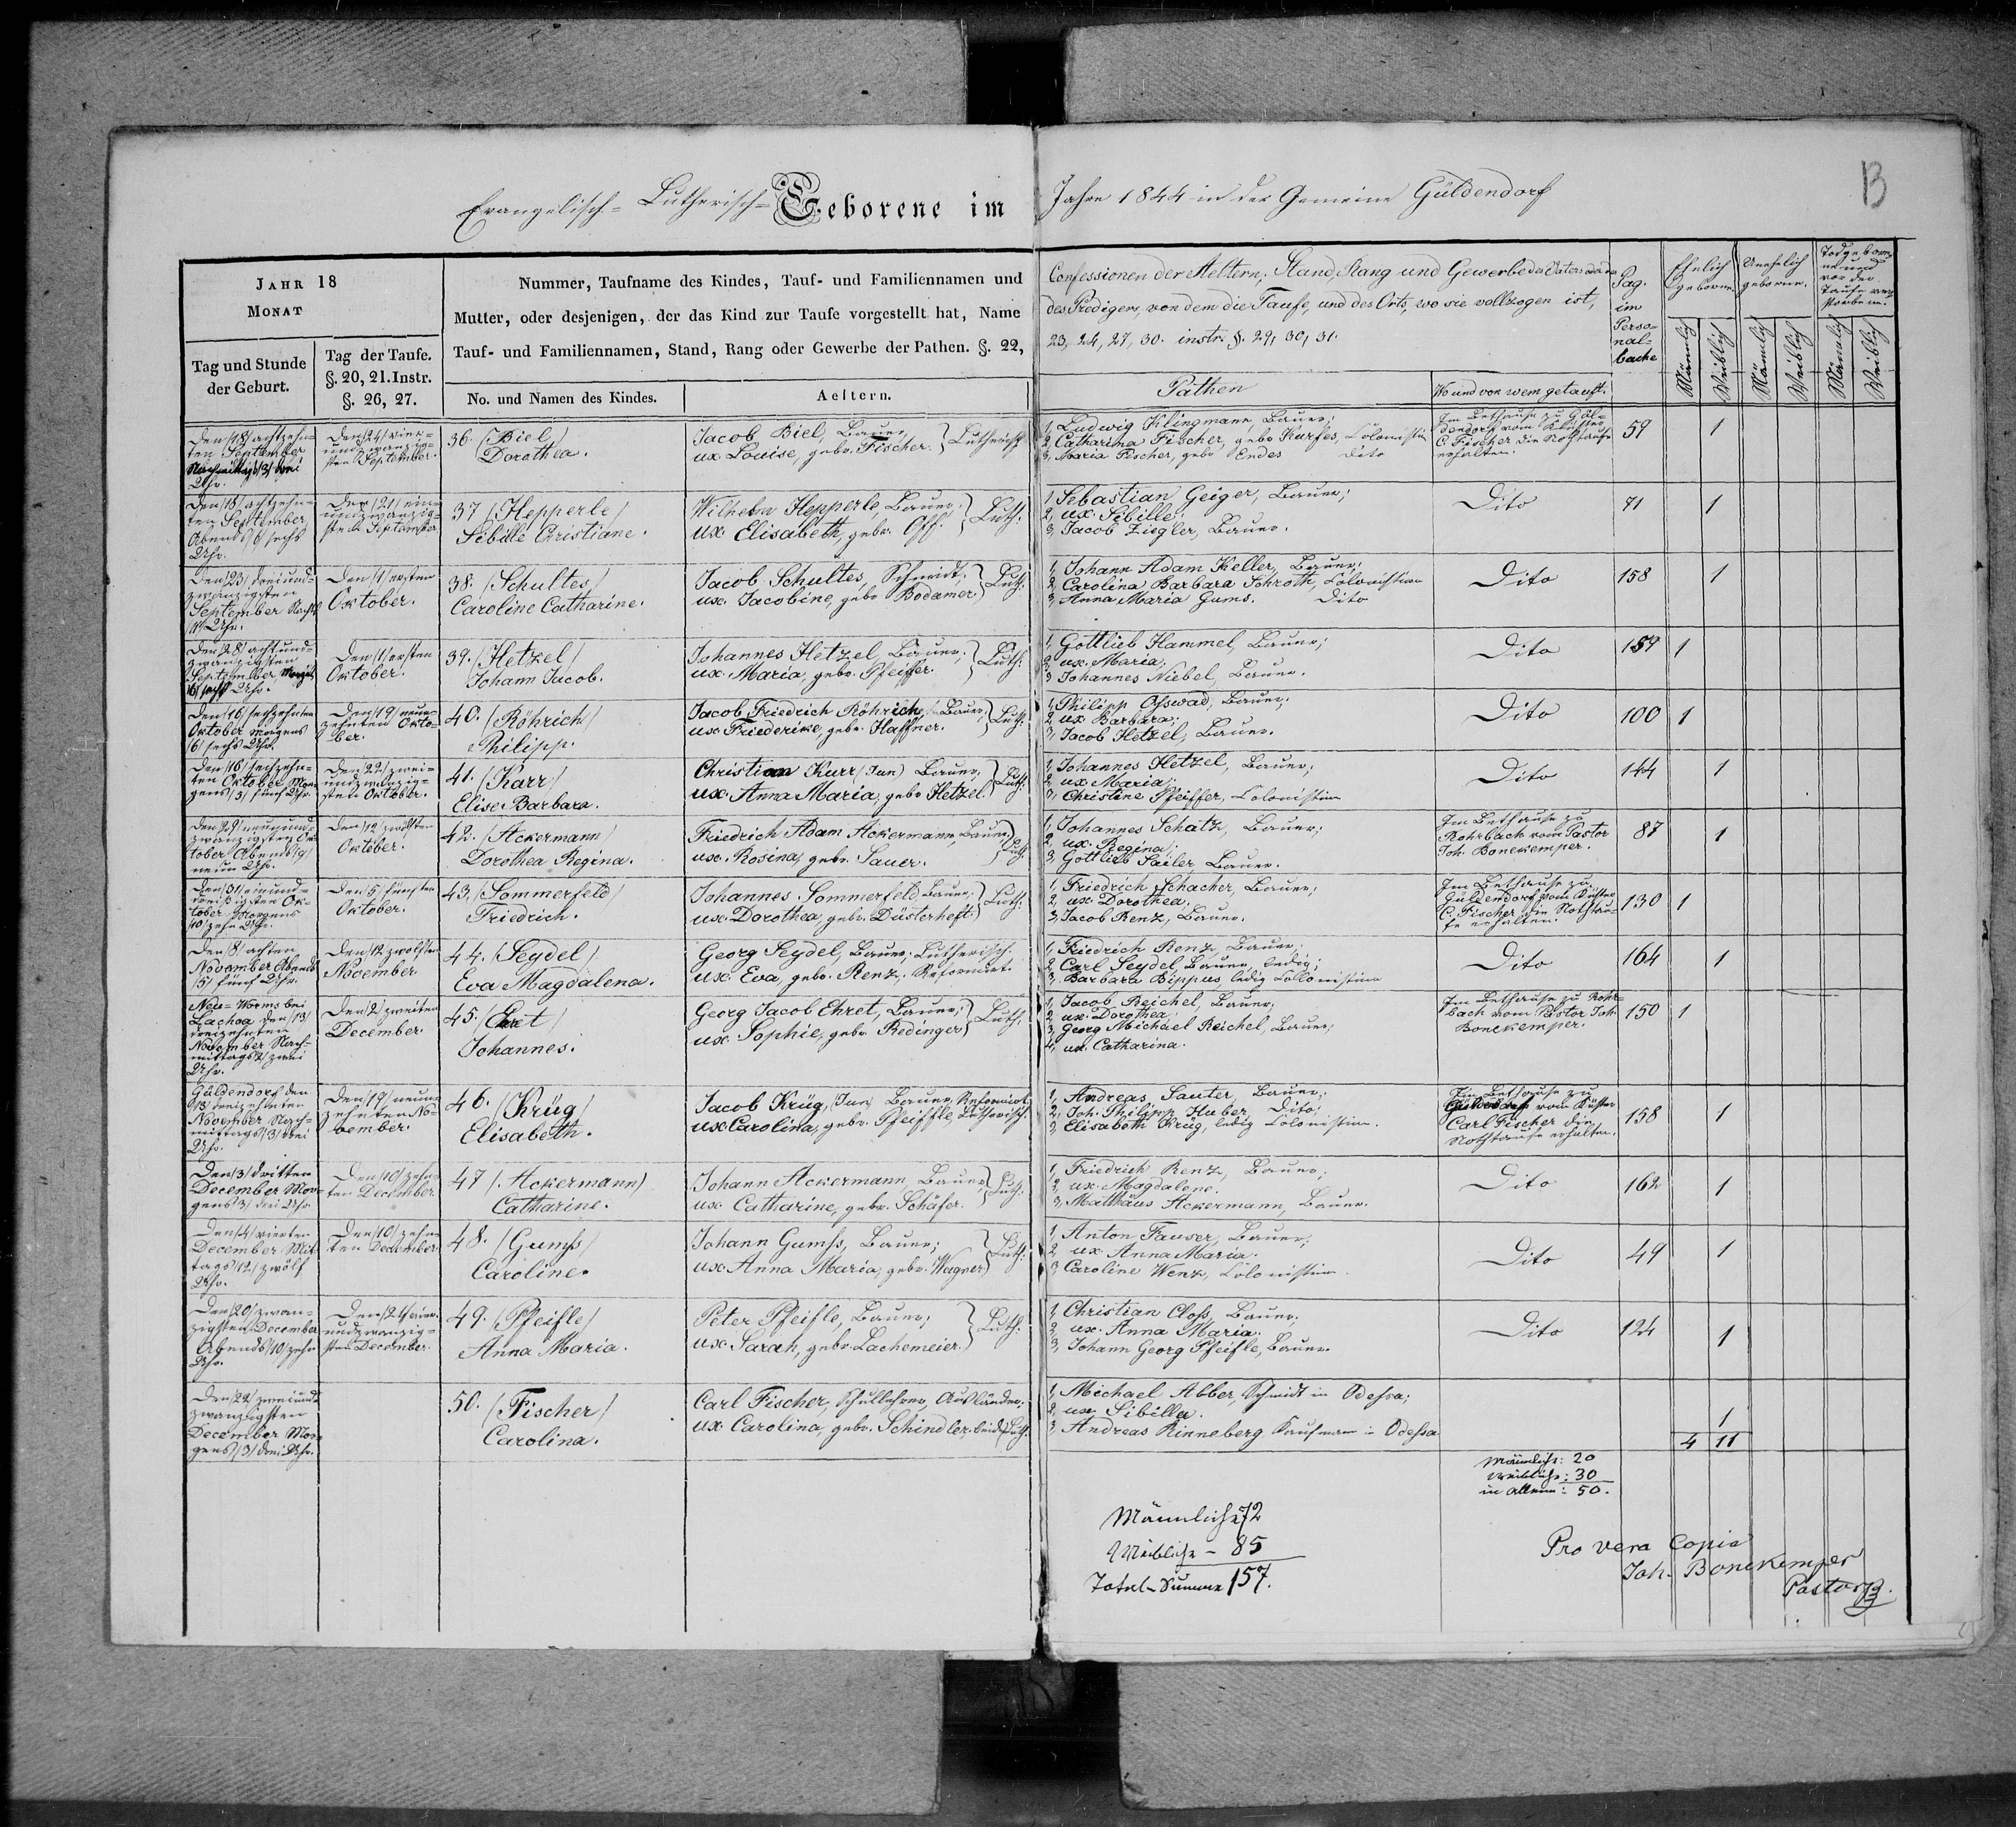 Evangelisch-Lutherisch-Geborene im Jahre 1844 in der Gemeine Güldendorf
13
JAHR 18
MONAT
Tag und Stunde
der Geburt.
Tag der Taufe.
§. 20, 21. Instr.
§. 26, 27.
Nummer, Taufname des Kindes, Tauf- und Familiennamen und
Mutter, oder desjenigen, der das Kind zur Taufe vorgestellt hat, Name
Tauf- und Familiennamen, Stand, Rang oder Gewerbe der Pathen. §. 22,
No. und Namen des Kindes.
Aeltern.
Confessionen der Aeltern, Stand, Rang und Gewerbe des Vaters oder der
des Predigers, von dem die Taufe, und des Orts, wo sie vollzogen ist,
23, 24, 27, 30. instr. §. 29, 30, 31.
Pathen
Wo und von wem getauft.
Pag.
im
Perso-
nal-
buche
Ehelich
geborne.
Unehelich
geborne.
Todgeborne
und
vor der
Taufe ver-
storbene.
Männlich
Weiblich
Männlich
Weiblich
Männlich
Weiblich
Den /18/ achtzehn-
ten September
Nachmittags /3/ drei
Uhr.
Den /24/ vier-
undzwanzig-
sten September.
36. /Biel/
Dorothea.
Jacob Biel, Bauer,
ux. Louise, gebr. Fischer. } Lutherisch
1, Ludwig Klingmann, Bauer;
2, Catharina Fischer, gebr. Kurfes, Colonistin
3, Maria Fischer, gebr. Endes Dito
Im Bethause zu Gül-
dendorf vom Küster
C. Fischer die Nothtaufe
erhalten.
59
1
Den /18/ achtzehn-
ten September,
Abends /6/ sechs
Uhr.
Den /21/ ein-
undzwanzig-
sten September.
37 /Hepperle/
Sibille Christiane.
Wilhelm Hepperle, Bauer;
ux. Elisabeth, gebr. Off. } Luth:
1, Sebastian Geiger, Bauer;
2, ux. Sibille;
3, Jacob Ziegler, Bauer.
Dito
71
1
Den /23/ dreiund-
zwanzigsten
September Nachts
/11/ Uhr.
Den /1/ ersten
Oktober.
38. /Schultes/
Caroline Catharine.
Jacob Schultes, Schmidt;
ux. Jacobine, gebr. Bodamer. } Luth:
1, Johann Adam Keller, Bauer;
2, Carolina Barbara Schroth, Colonistin
3, Anna Maria Gums. Dito
Dito
158
1
Den /28/ achtund-
zwanzigsten
September, Morgens
/6/ sechs Uhr.
Den /1/ ersten
Oktober.
39. /Hetzel/
Johann Jacob.
Johannes Hetzel, Bauer;
ux. Maria, gebr. Pfeiffer. } Luth:
1, Gottlieb Hammel, Bauer;
2, ux. Maria;
3, Johannes Niebel, Bauer.
Dito
159
1
Den /16/ sechzehnten
Oktober Morgens
/6/ sechs Uhr.
Den /19/ neun-
zehnten Okto-
ber.
40. /Röhrich/
Philipp.
Jacob Friedrich Röhrich, Bauer,
ux. Friederike, gebr. Haffner. } Luth:
1, Philipp Ofswad, Bauer;
2, ux. Barbara;
3, Jacob Hetzel, Bauer.
Dito
100
1
Den /16/ sechzehn-
ten Oktober Mor-
gens /5/ fünf Uhr.
Den /22/ zwei-
undzwanzig-
sten Oktober.
41. /Karr/
Elise Barbara.
Christian Kurr /Jun/ Bauer,
ux. Anna Maria, gebr. Hetzel. } Luth:
1, Johannes Hetzel, Bauer;
2, ux. Maria;
3, Christine Pfeiffer, Colonistin
Dito
144
1
Den /29/ neunund-
zwanzigsten Ok-
tober Abends /9/
neun Uhr.
Den /12/ zwölften
Oktober.
42. /Ackermann/
Dorothea Regina.
Friedrich Adam Ackermann, Bauer,
ux. Rosina, gebr. Sauer. } Luth.
1, Johannes Schatz, Bauer;
2, ux. Regina;
3, Gottlieb Sailer, Bauer.
Im Bethause zu
Rohrbach vom Pastor
Joh. Bonekemper.
87
1
Den /31/ einund-
dreißigsten Ok-
tober Morgens
/10/ zehn Uhr.
Den /5/ fünften
Oktober.
43, /Sommerfeld/
Friedrich.
Johannes Sommerfeld, Bauer;
ux. Dorothea, gebr. Düsterheft. } Luth.
1, Friedrich Schacher, Bauer;
2, ux. Dorothea.
3, Jacob Renz, Bauer.
Im Bethause zu
Güldendorf vom Küster
C. Fischer die Nothtau-
fe erhalten.
130
1
Den /8/ achten
November Abends
/5/ fünf Uhr.
Den /12/ zwölften
November.
44. /Seydel/
Eva Magdalena.
Georg Seydel, Bauer, Lutherisch.
ux. Eva, gebr. Renz, Reformirt.
1, Friedrich Renz, Bauer;
2, Carl Seydel, Bauer, ledig;
3, Barbara Bippus, ledig Collonistin
Dito
164
1
Neu-Worms bei
Lachoa den /13/
dreizehnten
November Nach-
mittags /2/ zwei
Uhr.
Den /2/ zweiten
December.
45. /Ehret/
Johannes.
Georg Jacob Ehret, Bauer;
ux. Sophie, gebr. Redinger } Luth.
1, Jacob Reichel, Bauer;
2, ux. Dorothea;
3, Georg Michael Reichel, Bauer;
4, ux. Catharina.
Im Bethause zu Rohr-
bach vom Pastor Joh.
Bonekemper.
150
1
Güldendorf den
/13/ dreizehnten
November Nach-
mittags /3/ drei
Uhr.
Den /19/ neun-
zehnten No-
vember.
46. /Krüg/
Elisabeth.
Jacob Krüg, /Jun/ Bauer, Reformirt
ux. Carolina, gebr. Pfeiffle, Lutherisch.
1, Andreas Sauter, Bauer;
2, Joh. Philipp Huber, Dito;
3, Elisabeth Krüg, ledig Colonistin.
Im Bethause zu
Güldendorf vom Küster
Carl Fischer die
Nothtaufe erhalten.
158
1
Den /3/ dritten
December Mor-
gens /3/ drei Uhr.
Den /10/ zehn-
ten December.
47 /Ackermann/
Catharine.
Johann Ackermann, Bauer,
ux. Catharine, gebr. Schäfer. } Luth.
1, Friedrich Renz, Bauer;
2, ux. Magdalene.
3, Matthäus Ackermann, Bauer.
Dito
162
1
Den /4/ vierten
December Mit-
tags /12/ zwölf
Uhr.
Den /10/ zehn-
ten December
48. /Gumß/
Caroline.
Johann Gumß, Bauer;
ux. Anna Maria, gebr. Wagner } Luth:
1, Anton Fauser, Bauer;
2, ux. Anna Maria.
3, Caroline Wenz, Colonistin.
Dito
49
1
Den /20/ zwan-
zigsten December
Abends /10/ zehn
Uhr.
Den /21/ ein-
undzwanzig-
sten December.
49. /Pfeifle/
Anna Maria.
Peter Pfeifle, Bauer;
ux. Sarah, gebr. Lachemeier. } Luth:
1, Christian Closs, Bauer;
2, ux. Anna Maria.
3, Johann Georg Pfeifle, Bauer.
Dito
124
1
Den /22/ zweiund-
zwanzigsten
December Mor-
gens /3/ drei Uhr.
50. /Fischer/
Carolina.
Carl Fischer, Schullehrer, Ausländer,
ux. Carolina, gebr. Schindler, beide Luth.
1, Michael Abber, Schmidt in Odessa;
2, ux. Sibilla.
3, Andreas Rinneberg, Kaufmann in Odessa
1
4 11
Männliche: 20
weibliche: 30
in allem: 50.
Männliche 72
Weibliche - 85
Total-Summe 157.
Pro vera Copia
Joh. Bonekemper
Pastor